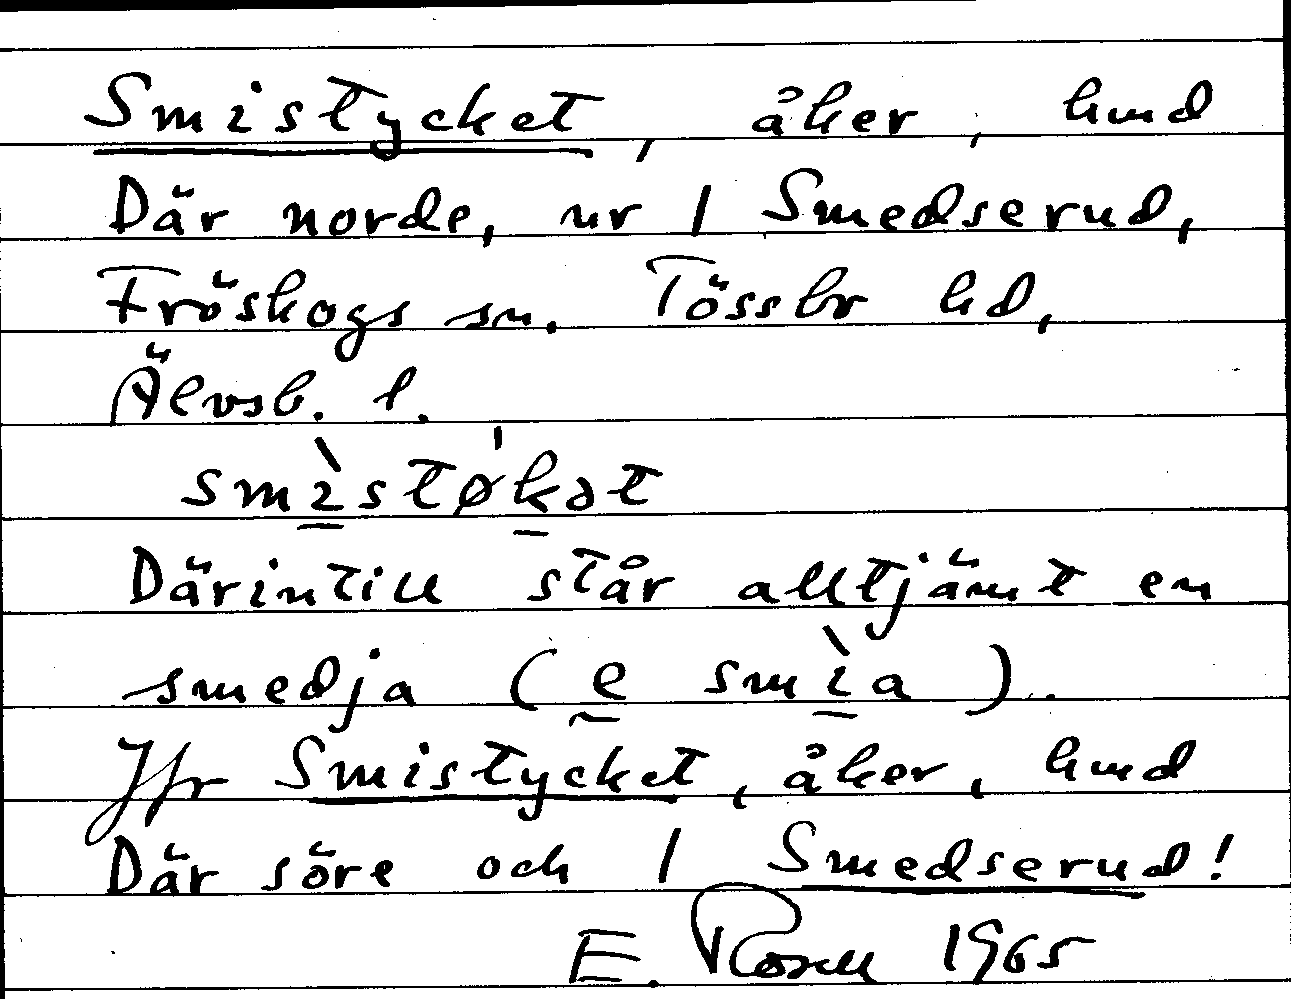 Smistycket, åker, hmd
Där norde, nr 1 Smedserud,
Fröskogs sn. Tössbo hd,
Älvsb. l.
smìstø'kət
Därintill står alltjämt en
smedja (e smìa).
Jfr Smistycket, åker, hmd
Där söre och 1 Smedserud!
E. Rosell 1965